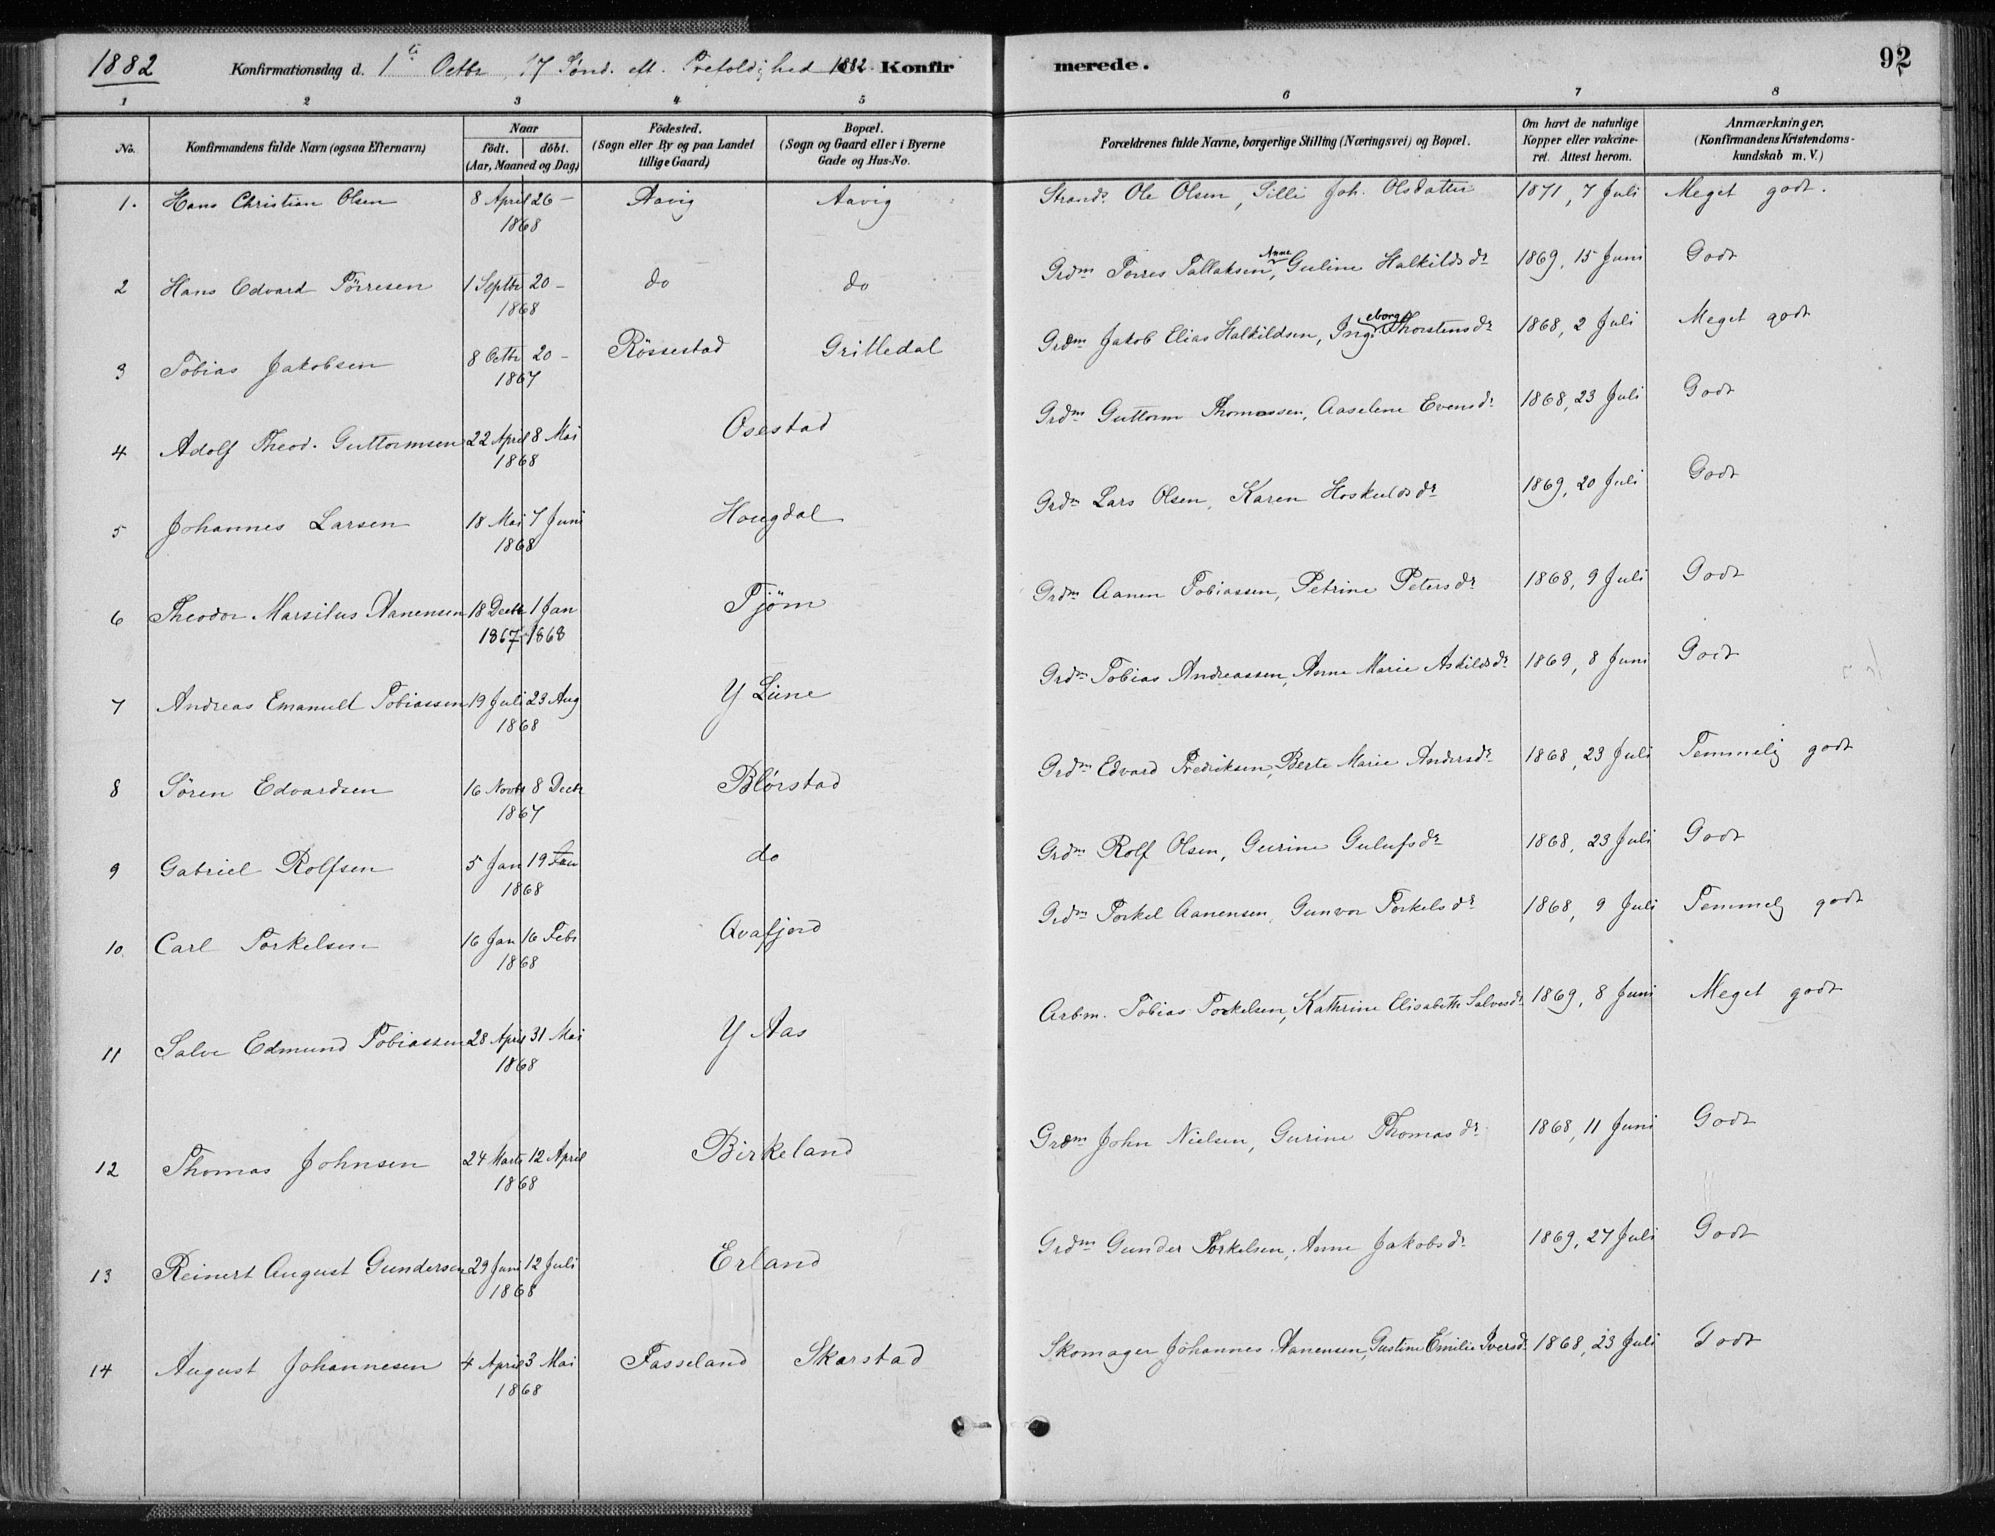 1882 Konfirmationsdag d. 1te Octbr 17 Sönd. eft. Trefoldighed 1882. Konfirmerede. 92
1 2 3 4 5 6 7 8
No. Konfirmandens fulde Navn (ogsaa Efternavn) Naar födt. döbt. (Aar, Maaned og Dag) Födested. (Sogn eller By og paa Landet tillige Gaard) Bopæl. (Sogn og Gaard eller i Byerne Gade og Hus-No. Forældrenes fulde Navne, borgerlige Stilling (Næringsvei) og Bopæl. Om havt de naturlige Kopper eller vakcineret. Attest herom. Anmærkninger. (Konfirmandens Kristendomskundskab m. V.)
1. Hans Christian Olsen 8 April 26 – 1868 Aavig Aavig Strands. Ole Olsen, Silli Joh. Olsdatter 1871, 7 Juli Meget godt.
2 Hans Edvard Törresen 1 Septbr 20 – 1868 do do Grdm Torres Tallaksen, Anne Guline Halkildsdr 1869, 15 Juni Godt
3 Tobias Jakobsen 8 Octbr 20 – 1867 Rössestad Grilledal Grdm Jakob Elias Halkildsen, Ingeborg Thorstensdr 1868, 2 Juli Meget godt
4 Adolf Theod. Guttormsen 22 April 8 Mai 1868 Osestad Grdm Guttorm Thomassen, Aaselene Evensdr 1868, 23 Juli Godt
5 Johannes Larsen 18 Mai 7 Juni 1868 Hougdal Grdm Lars Olsen, Karen Hoskuldsdr 1869, 20 Juli Godt
6 Theodor Marsilus Aanensen 18 Decbr 1 Jan 1867–1868 Tjöm Grdm Aanen Tobiassen, Petrine Petersdr 1868, 9 Juli Godt
7 Andreas Emanuel Tobiassen 19 Juli 23 Aug 1868 Y Lüne Grdm Tobias Andreassen, Anne Marie Askildsdr 1869, 8 Juni Godt
8 Sören Edvardsen 16 Novbr 8 Decbr 1867 Blörstad Grdm Edvard Fredriksen, Berte Marie Andersdr 1868, 23 Juli Temmelig godt
9 Gabriel Rolfsen 5 Jan 19 Jan 1868 do Grdm Rolf Olsen, Gurine Gulufsdr 1868, 23 Juli Godt
10 Carl Torkelsen 16 Jan 16 Febr 1868 Qvafjord Grdm Torkel Aanensen, Gunvor Torkelsdr 1868, 9 Juli Temmelig godt
11 Salve Edmund Tobiassen 28 April 31 Mai 1868 Y Aas Arbm. Tobias Torkelsen, Kathrine Elisabeth Salvesdr 1869, 8 Juni Meget godt
12 Thomas Johnsen 24 Marts 12 April 1868 Birkeland Grdm John Nielsen, Gurine Thomasdr 1868, 11 Juni Godt
13 Reinert August Gundersen 29 Juni 12 Juli 1868 Erland Grdm Gunder Torkelsen, Anne Jakobsdr 1869, 27 Juli Godt
14 August Johannesen 4 April 3 Mai 1868 Fasseland Skarstad Skomager Johannes Aanensen, Gustine Emilie Iversdr 1868, 23 Juli Godt